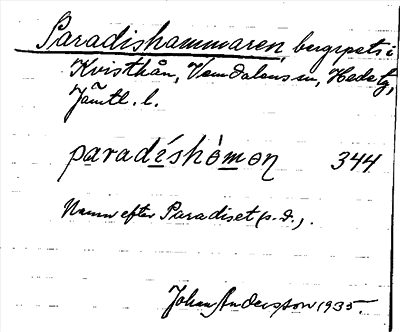 Paradishammaren, bergspets i
Kvisthån, Vemdalens sn, Hede tg,
Jämtl. l.
paradíshòmon 344
Namn efter Paradiset (s. d.).
Johan Andersson 1935.